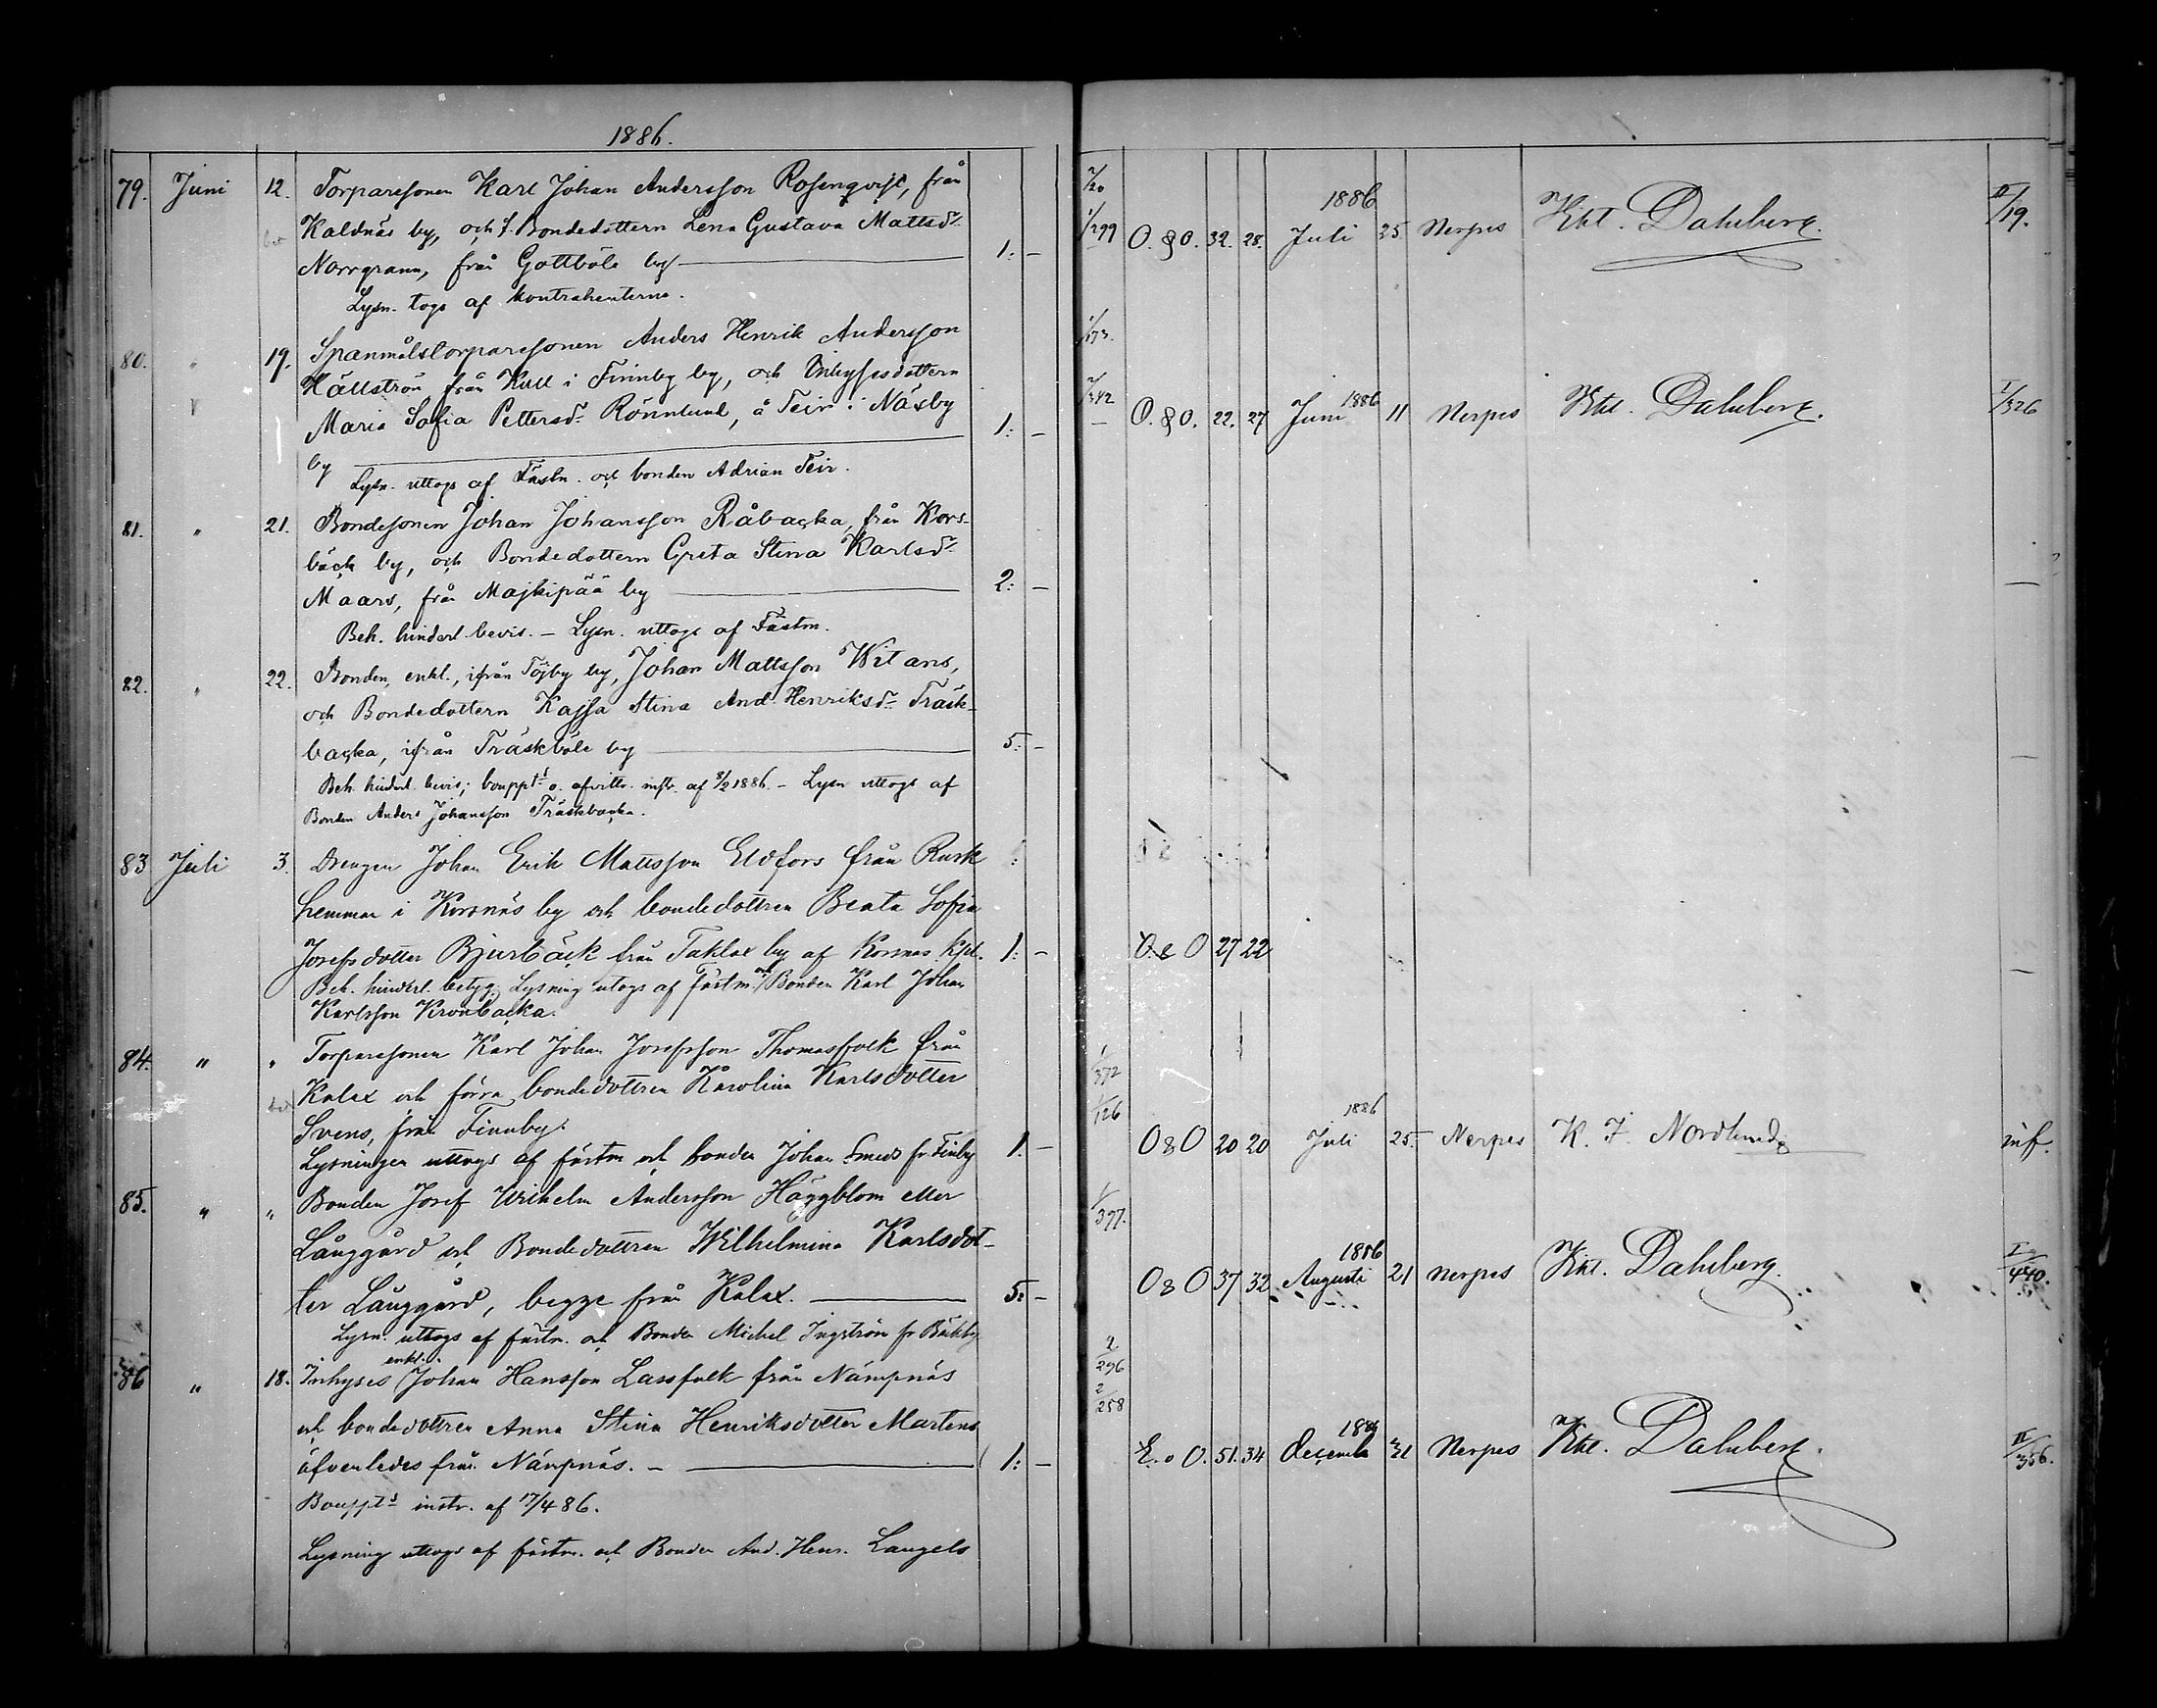 1886.
79. Juni 12. Torparesonen Karl Johan Andersson Rosenqvist, från
Kaldnäs by, och f. Bondedottern Lena Gustava Mattsdr
Norrgrann, från Gottböle by 1: –
Lysn. togs af kontrahenterna.
80. " 19. Spanmålstorparesonen Anders Henrik Andersson
Hällström från Kull i Finnby by, och Inhysesdottern
Maria Sofia Pettersdr Rönnlund, å Teir i Näsby 1: –
by
Lysn. uttogs af Fästm. och bonden Adrian Teir.
81. " 21. Bondesonen Johan Johansson Råbacka, från Kors-
bäck by, och Bondedottern Greta Stina Karlsdr
Maars, från Majkipää by 2: –
Beh. hinderl. bevis. – Lysn. uttogs af Fästm.
82. " 22. Bonden, enkl., ifrån Töjby by, Johan Mattsson Witans,
och Bondedottern Kajsa Stina And. Henriksdr Träsk-
backa, ifrån Träskböle by 5: –
Beh. hinderl. bevis; bouppts o. afvittr. instr. af 8/2 1886. – Lysn uttogs af
Bonden Anders Johansson Träskbacka.
83 Juli 3. Drengen Johan Erik Mattsson Eldfors från Rusk
hemman i Korsnäs by och bondedottren Beata Sofia
Josefsdotter Bjurbäck från Taklax by af Korsnäs Kpl. 1: –
Beh. hinderl. betyg. Lysning utogs af fästm. och Bonden Karl Johan
Karlsson Kronbacka.
84. " " Torparesonen Karl Johan Josefsson Thomasfolk från
Kalax och förra bondedottren Karolina Karlsdotter
Svens, från Finnby.
Lysningen uttogs af fästm och bonden Johan Smeds fr. Finby 1. –
85. " " Bonden Josef Wilhelm Andersson Häggblom eller
Långgård och Bondedottren Wilhelmina Karlsdot-
ter Långgård, begge från Kalax. 5: –
Lysn. uttogs af fästm. och Bonden Michel Ingström fr Bäckby
86 " 18. Inhyses enkl. Johan Hansson Lassfolk från Nämpnäs
och bondedottren Anna Stina Henriksdotter Martens
äfvenledes från Nämpnäs. – 1: –
Bouppts instr. af 17/4 86.
Lysning uttogs af fästm. och Bonden And. Henr. Langels
2/20
1/299 O. & O. 32. 28. 1886 Juli 25. Nerpes Khl. Dahlberg. II/19.
1/173.
2/342 O. & O. 22. 27 Juni 1886 11 Nerpes Khl. Dahlberg. I/326
O & O 27 22
1/372
1/126 O & O 20 20 1886 Juli 25. Nerpes K. F. Nordlund inf.
1/397.
O & O 37 32 1886 Augusti 21 Nerpes Khl. Dahlberg. I/440.
2/296
2/258
E. o O. 51. 34 1886 December 31 Nerpes Khl. Dahlberg. II/356.